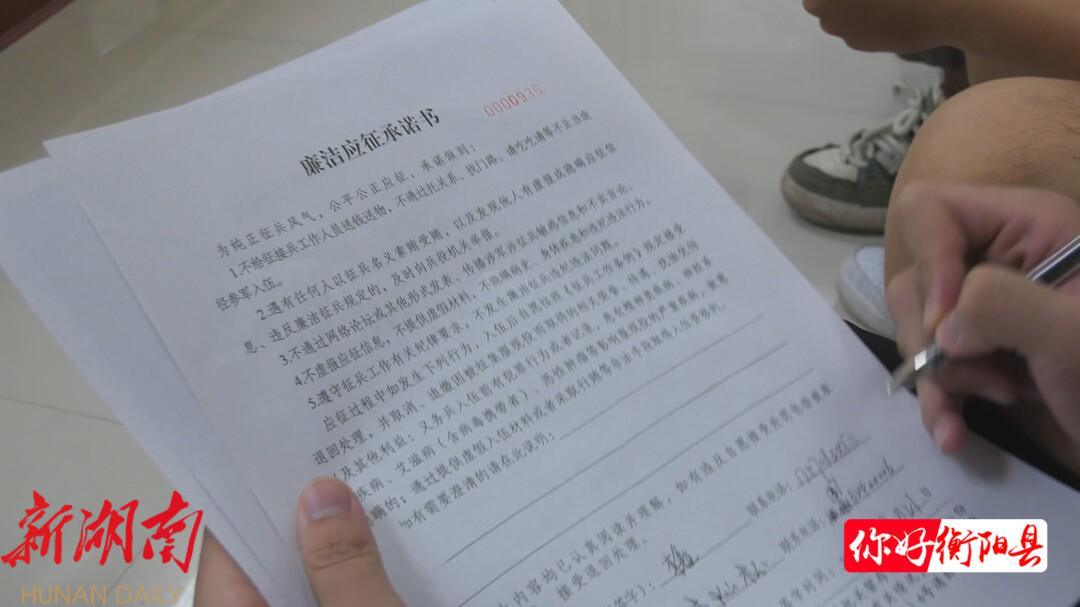 廉洁应征承诺书
0000936
为纯正征兵风气，公平公正应征，承诺做到：
1.不给征接兵工作人员送钱送物，不通过托关系、找门路、请吃吃请等不正当途
径参军入伍。
2.遇有任何人以征兵名义索贿受贿，以及发现他人有虚报或隐瞒应征信
息、违反廉洁征兵规定的，及时向兵役机关举报。
3.不通过网络论坛或其他形式发表、传播涉军涉征兵敏感信息和不实言论。
4.不虚报应征信息，不提供虚假材料，不隐瞒病史、身体疾患和违纪违法行为。
5.遵守征兵工作有关纪律要求，不发生廉洁征兵违纪违法问题。
应征过程中如发生下列行为，入伍后自愿按照《征兵工作条例》规定接受
退回处理，并取消、追缴因被征集服现役而取得的相关荣誉、待遇、抚恤优待
以及其他利益：义务兵入伍前有犯罪行为或者记录，患有精神类疾病、神经系
疾病、艾滋病（含病毒携带者）、恶性肿瘤等影响服现役的严重疾病，故意
隐瞒的；通过提供虚假入伍材料或者采取行贿等非法手段取得入伍资格的。
如有需要澄清的请在此说明：
内容均已认真阅读并理解，如有违反自愿接受
接受退回处理。
签字）：
联系电话：
联系电话：
时间：
新湖南
HUNAN DAILY
你好衡阳县